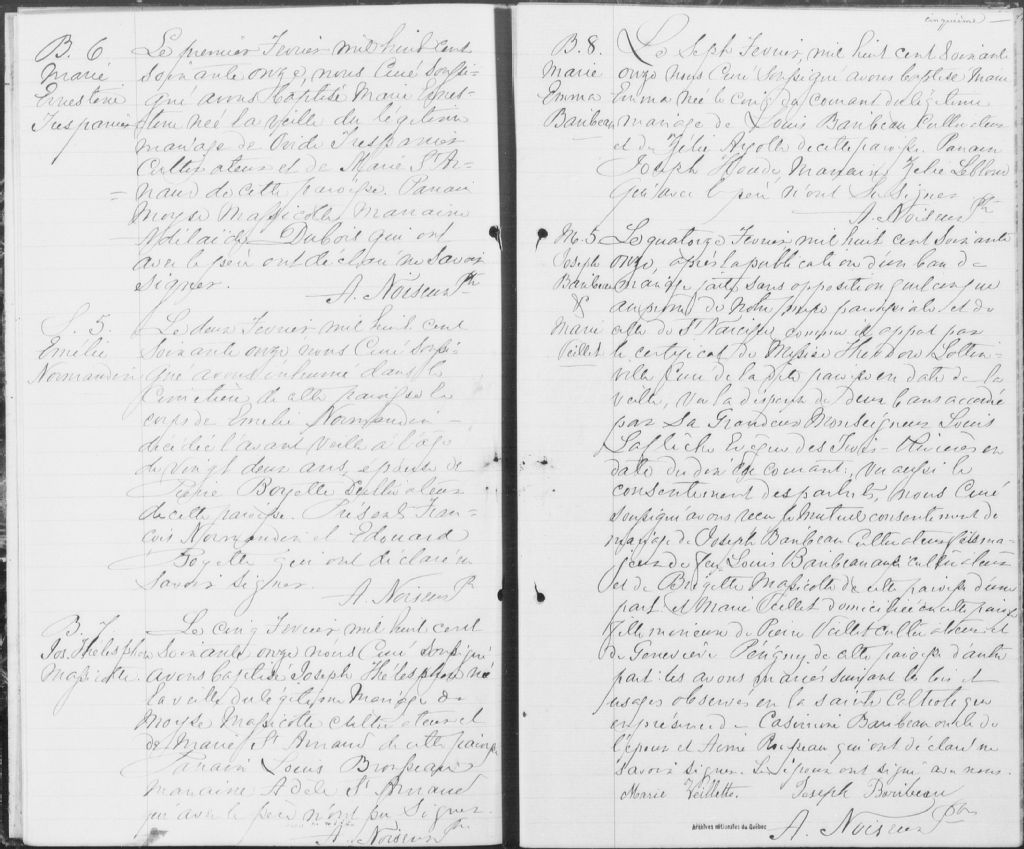 B. 6
Marie
Ernestine
Trepanier
Le premier Fevrier mil huit cent
soixante onze, nous Curé soussi-
gné avons baptisé Marie Ernes-
tine neé la veille du légitime
mariage de Trepanier
Cultivateur et de Marie St Ar-
naud de cette paroisse. Parrain
Moyse Massicotte Marraine
Adilaide Dubois qui ont
avec le père ont déclaré ne savoir
signer.
A. Noiseux Ptre
S. 5.
Emélie
Normandin
Le deux Fevrier mil huit cent
soixante onze nous Curé soussi-
gné avons inhumé dans le
Cimetière de cette paroisse le
corps de Emelie Normandin
décédée l'avant veille à l'âge
de vingt deux ans, epouse de
Pierre Boyette Cultivateur
de cette paroisse. Présents Fran-
çois Normandin et Edouard
Boyette qui ont déclaré ne
savoir signer
A. Noiseux Ptr
B. 7
Jos. Thelesphore
Massicotte
Le cinq Fevrier mil huit cent
soixante onze nous Curé soussigné
avons baptisé Joseph Thélesphore né
la veille du légitime Mariage de
Moyse Massicotte cultivateur et
de Marie St Arnaud de cette paroisse
Parrain Louis Brousseau
marraine Adele St Arnaud
qui avec le père n'ont pu signer.
A. Noiseux Ptre
cinquième
B. 8.
Marie
Emma
Baribeau
Le Sept Fevrier, mil huit cent soixante
onze nous Curé soussigné avons baptisé Marie
Emma née le cinq du courant du légitime
mariage de Louis Baribeau Cultivateur
et de Zelie Ayotte de cette paroisse. Parrain
Joseph Houde Marraine Zelie Leblanc
qui avec le père n'ont su signer
A. Noiseux Ptr
M. 5.
Joseph
Baribeau
&
Marie
Veillet
Le quatorze Fevrier mil huit cent soixante
onze, après la publication d'un ban de
mariage faite sans opposition quelconque
au prône de notre messe paroissiale et de
celle de St Narcisse comme il appert par
le certificat de Messire Théodore
Curé de la dite paroisse en date de la
veille, vu la dispense de deux bans accordée
par Sa Grandeur Monseigneur Louis
Laflèche Evêque des Trois-Rivières en
date du dix du courant; vu aussi le
consentement des parents, nous Curé
soussigné avons reçu le mutuel consentement de
mariage de Joseph Baribeau cultivateur fils ma-
jeur de feu Louis Baribeau cultivateur
et de Brigette Massicotte de cette paroisse d'une
part et Marie Veillet domiciliée en cette paroisse
fille mineure de Pierre Veillet cultivateur et
de Genevieve Perigny de cette paroisse d'autre
part: les avons mariés suivant les lois et
usages observés en la sainte
en présence de Casimir Baribeau oncle de
l'époux et qui ont déclaré ne
savoir signer. Les époux ont signé avec nous.
Marie Veillette. Joseph Baribeau
A. Noiseux Ptre
Archives nationales du Québec